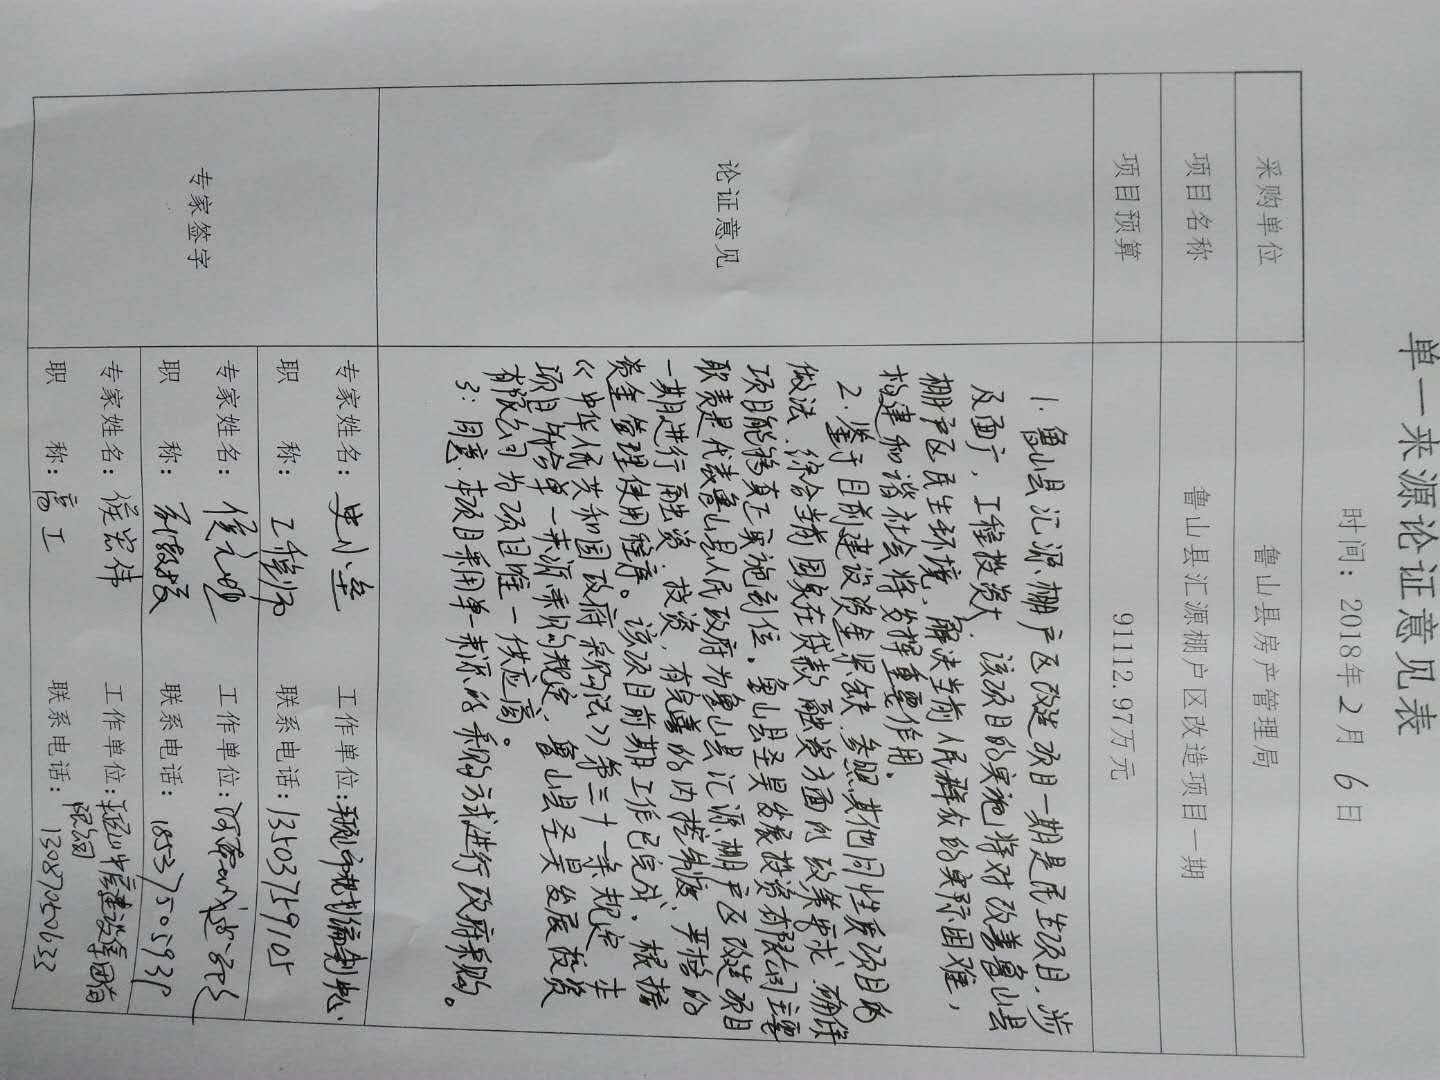 单一来源论证意见表
时间：2018年2月6日
采购单位 鲁山县房产管理局
项目名称 鲁山县汇源棚户区改造项目一期
项目预算 91112.97万元
论证意见
1.鲁山县汇源棚户区改造项目一期是民生项目,涉
及面广,工程投资大.该项目的实施将对改善鲁山县
棚户区民生环境、解决当前人民群众的实际困难,
构建和谐社会将发挥重要作用.
2.鉴于目前建设资金紧缺,参照其他同性质项目的
做法.综合当前国家在贷款融资方面的政策要求.确保
项目能够真正实施到位。鲁山县圣昊发展投资有限公司主要
职责是代表鲁山县人民政府为鲁山县汇源棚户区改造项目
一期进行融资、投资,有完善的内控制度,严格的
资金管理使用程序。该项目前期工作已完成。根据
《中华人民共和国政府采购法》第三十一条规定,本
项目符合单一来源采购规定,鲁山县圣昊发展投资
有限公司为项目唯一供应商。
3:同意.本项目采用单一来源的采购方式进行政府采购。
专家签字
专家姓名: 工作单位:
职 称: 工程师 联系电话:13503759105
专家姓名: 工作单位:
职 称: 副教授 联系电话: 18537505939
专家姓名: 伟 工作单位:
限公司
职 称: 高工 联系电话: 13087050633